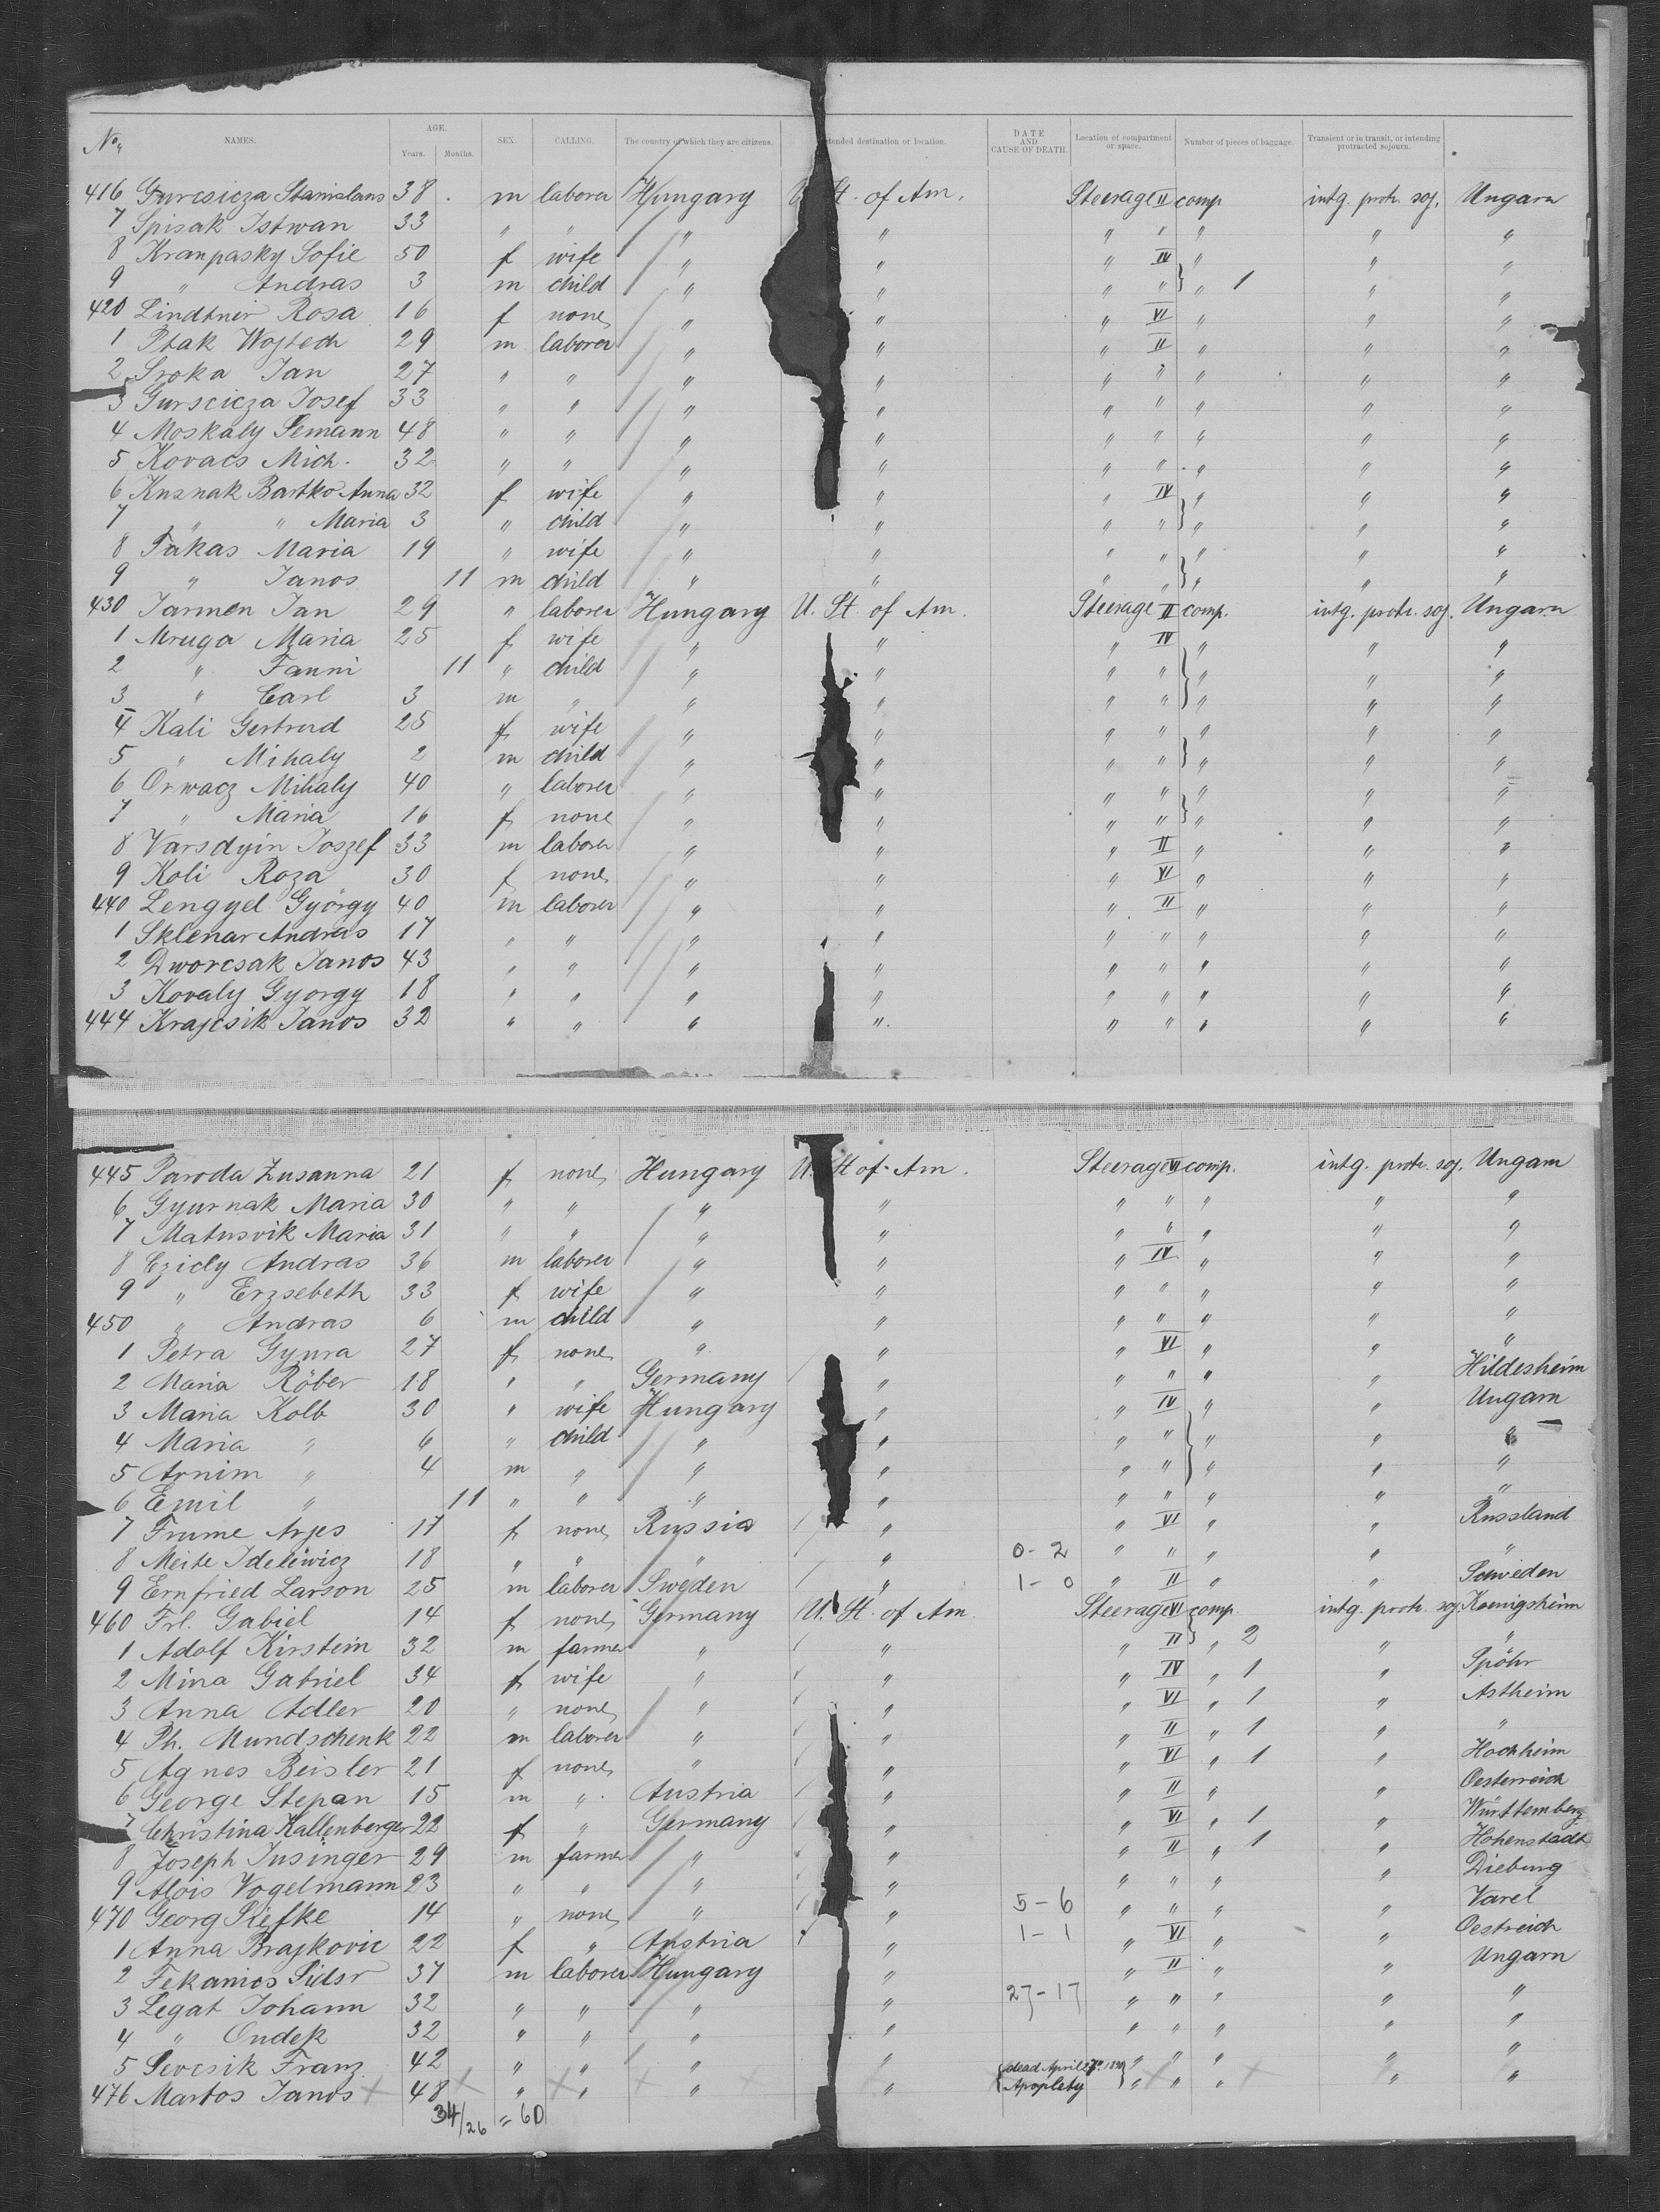 No. NAMES. AGE. Years. Months. SEX. CALLING. The country of which they are citizens. Intended destination or location. DATE AND CAUSE OF DEATH. Location of compartment or space. Number of pieces of baggage. Transient or in transit, or intending protracted sojourn.
416 Gurcsicza Stanislaus 38 m laborer Hungary U. St. of Am. Steerage II comp intg. protr. soj. Ungarn
7 Spisak Istwan 33 " " " " " " " " "
8 Kranpasky Sofie 50 f wife " " " IV " " "
9 " Andras 3 m child " " " " " 1 " "
420 Lindtner Rosa 16 f none " " " VI " " "
1 Ptak Wojtech 29 m laborer " " " II " " "
2 Sroka Jan 27 " " " " " " " " "
3 Gurscicza Josef 33 " " " " " " " " "
4 Moskaly Semann 48 " " " " " " " " "
5 Kovacs Mich. 32 " " " " " " " " "
6 Kusnak Bartko Anna 32 f wife " " " IV " " "
7 " " Maria 3 " child " " " " " " "
8 Takas Maria 19 " wife " " " " " " "
9 " Janos 11 m child " " " " " " "
430 Jarmen Jan 29 " laborer Hungary U. St. of Am. Steerage II comp. intg. protr. soj. Ungarn
1 Mruga Maria 25 f wife " " " IV " " "
2 " Fanni 11 " child " " " " " " "
3 " Carl 3 m " " " " " " " "
4 Kali Gertrud 25 f wife " " " " " " "
5 " Mihaly 2 m child " " " " " " "
6 Orwacz Mihaly 40 " laborer " " " " " " "
7 " Maria 16 f none " " " " " " "
8 Varsdyin Joszef 33 m laborer " " " II " " "
9 Koli Roza 30 f none " " " VI " " "
440 Lengyel György 40 m laborer " " " II " " "
1 Sklenar Andras 17 " " " " " " " " "
2 Dworcsak Janos 43 " " " " " " " " "
3 Kovaly Gyorgy 18 " " " " " " " " "
444 Krajcsik Janos 32 " " " " " " " " "
445 Paroda Zusanna 21 f none Hungary U. St of Am. Steerage VI comp. intg. protr. soj. Ungarn
6 Gyurnak Maria 30 " " " " " " " " "
7 Matusvik Maria 31 " " " " " " " " "
8 Ezicly Andras 36 m laborer " " " IV " " "
9 " Erzsebeth 33 f wife " " " " " " "
450 " Andras 6 m child " " " " " " "
1 Petra Gyura 27 f none " " " VI " " "
2 Maria Röber 18 " " Germany " " " " " Hildesheim
3 Maria Kolb 30 " wife Hungary " " IV " " Ungarn
4 Maria " 6 " child " " " " " " "
5 Arnim " 4 m " " " " " " " "
6 Emil " 11 " " " " " " " " "
7 Frume Arjes 17 f none Russia " " VI " " Russland
8 Meite Idelewicz 18 " " " " 0-2 " " " " "
9 Ernfried Larson 25 m laborer Sweden " 1-0 " II " " Schweden
460 Frl. Gabiel 14 f none Germany U. St. of Am. Steerage VI comp. intg. protr. soj. Koenigsheim
1 Adolf Kirstein 32 m farmer " " " II " 2 " "
2 Mina Gabriel 34 f wife " " " IV " 1 " Spöhr
3 Anna Adler 20 " none " " " VI " 1 " Astheim
4 Ph. Mundschenk 22 m laborer " " " II " 1 " "
5 Agnes Beisler 21 f none " " " VI " 1 " Hochheim
6 George Stepan 15 m " Austria " " II " " Oesterreich
7 Christina Kallenberger 22 f " Germany " " VI " 1 " Württemberg
8 Joseph Jusinger 29 m farmer " " " II " 1 " Hohenstadt
9 Alois Vogelmann 23 " " " " " " " " Dieburg
470 Georg Siefke 14 " none " " 5-6 " " " " Varel
1 Anna Brajkovic 22 f " Austria " 1-1 " VI " " Oestreich
2 Fekanics Sidsr 37 m laborer Hungary " " II " " Ungarn
3 Legat Johann 32 " " " " 27-17 " " " " "
4 " Ondek 32 " " " " " " " " "
5 Sevcsik Franz 42 " " " " " " " " "
476 Martos Janos 48 " " " " {dead April 27th Apoplexy} " " " " "
34/26 = 60